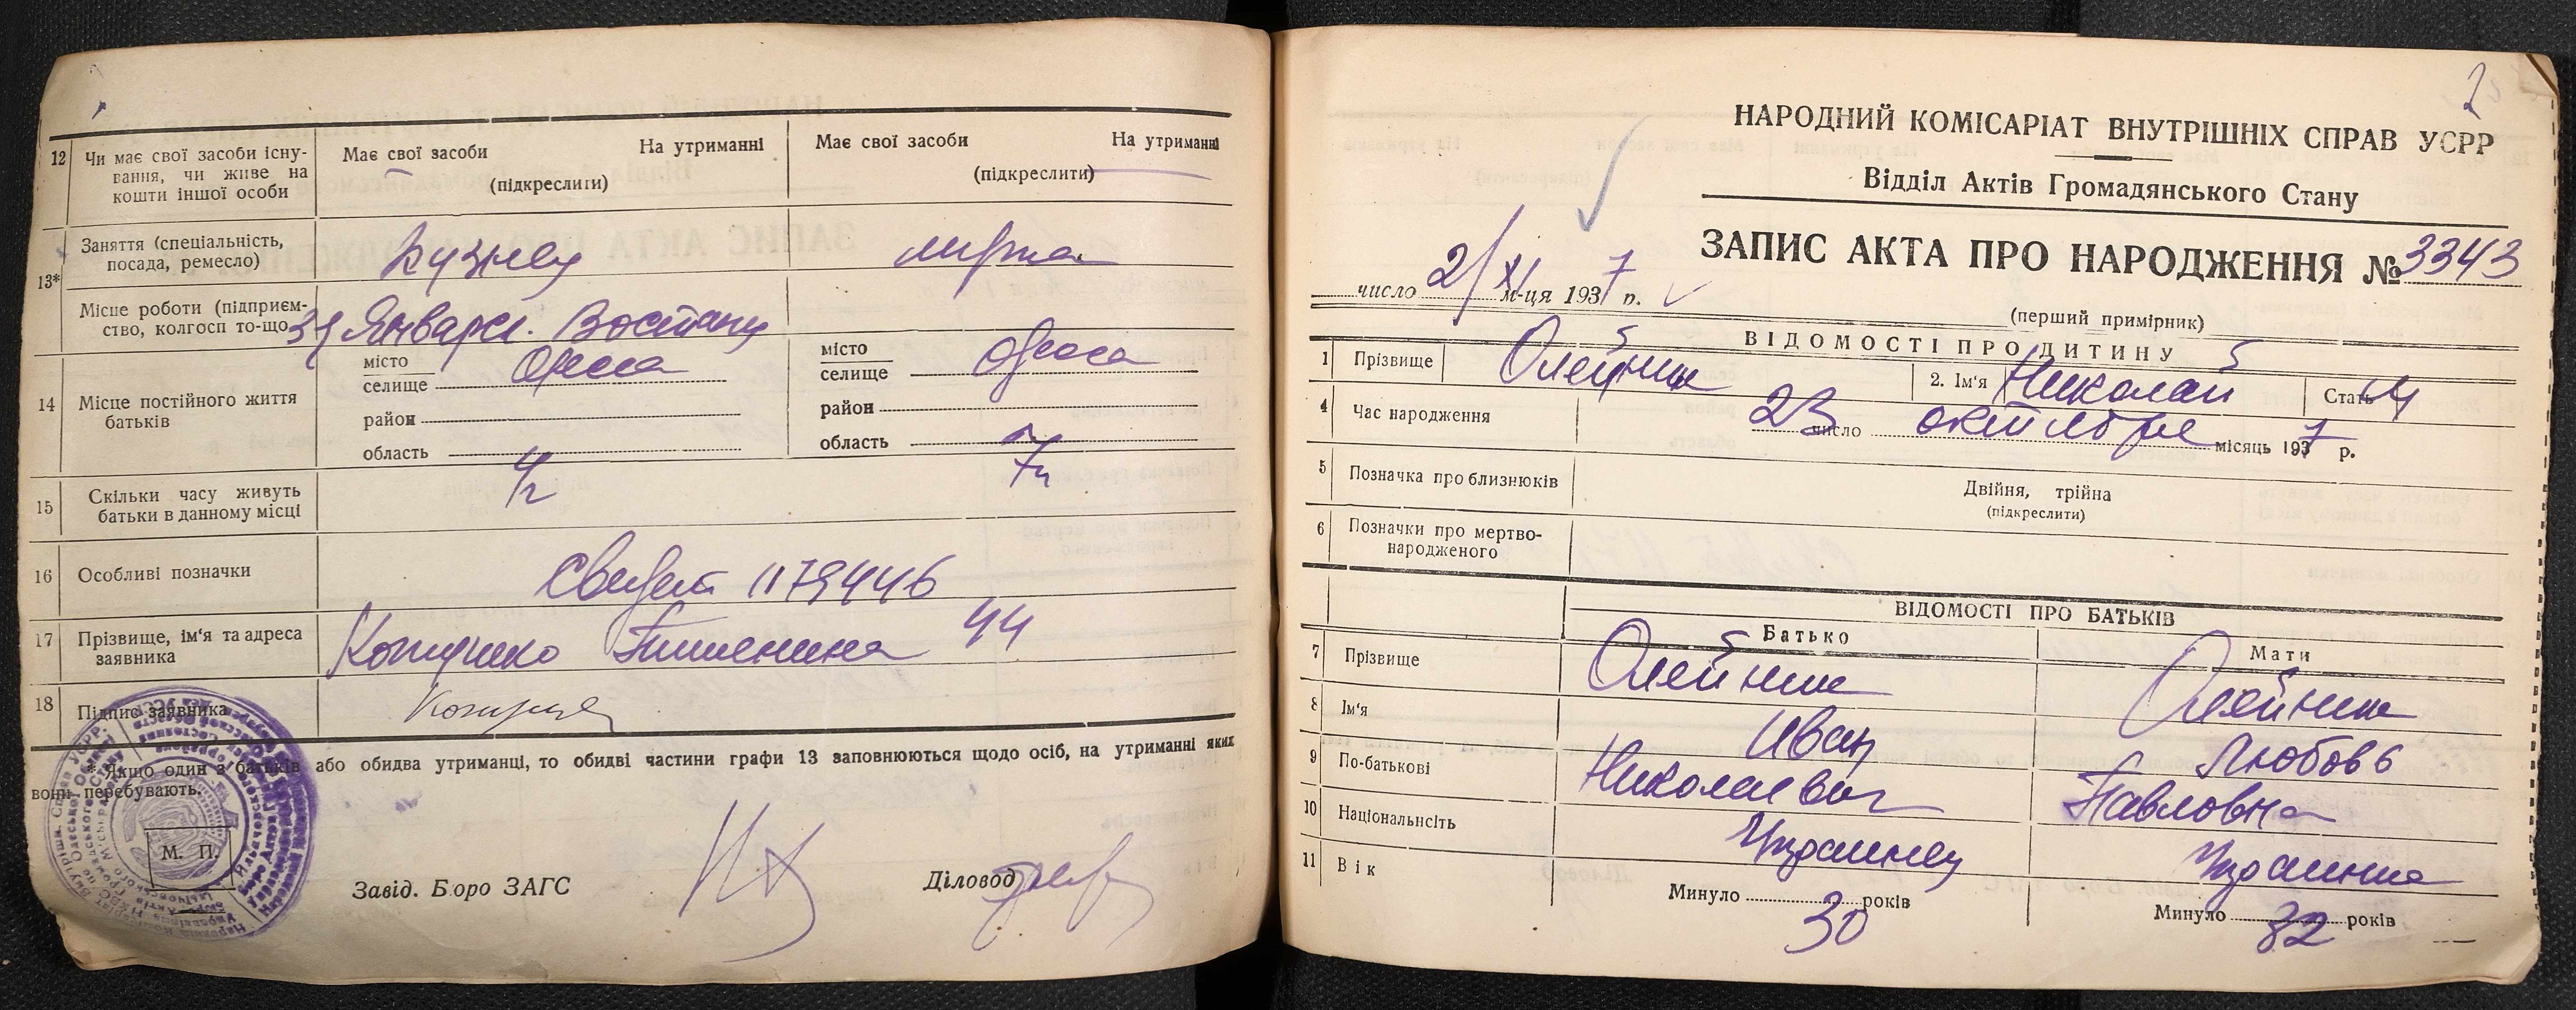 12 Чи має свої засоби існу-
вання, чи живе на
кошти іншої особи
Має свої засоби На утриманні
(підкреслити)
Має свої засоби На утриманні
(підкреслити)
13* Заняття (спеціальність,
посада, ремесло)
Кузнец
Місце роботи (підприєм-
ство, колгосп то-що
Январск. Востани
14 Місце постійного життя
батьків
місто Одесса
селище
район
область
місто Одесса
селище
район
область
15 Скільки часу живуть
батьки в данному місці
16 Особливі позначки
Свидет 1179446
17 Прізвище, ім'я та адреса
заявника
44
18 Підпис заявника
* Якщо один з батьків або обидва утриманці, то обидві частини графи 13 заповнюються щодо осіб, на утриманні яких
вони перебувають.
М. П.
Завід. Бюро ЗАГС
Діловод
2
НАРОДНИЙ КОМІСАРІАТ ВНУТРІШНІХ СПРАВ УСРР
Відділ Актів Громадянського Стану
ЗАПИС АКТА ПРО НАРОДЖЕННЯ № 3343
число 2/XI м-ця 1937 р.
(перший примірник)
ВІДОМОСТІ ПРО ДИТИНУ
1 Прізвище Олейник 2. Ім'я Николай Стать М
4 Час народження 23 число октября місяць 1937 р.
5 Позначка про близнюків
Двійня, трійна
(підкреслити)
6 Позначки про мертво-
народженого
ВІДОМОСТІ ПРО БАТЬКІВ
Батько Мати
7 Прізвище Олейник Олейник
8 Ім'я Иван Любовь
9 По-батькові Николаевич Павловна
10 Національнсіть Украинец Украинка
11 Вік
Минуло 30 років
Минуло 32 років